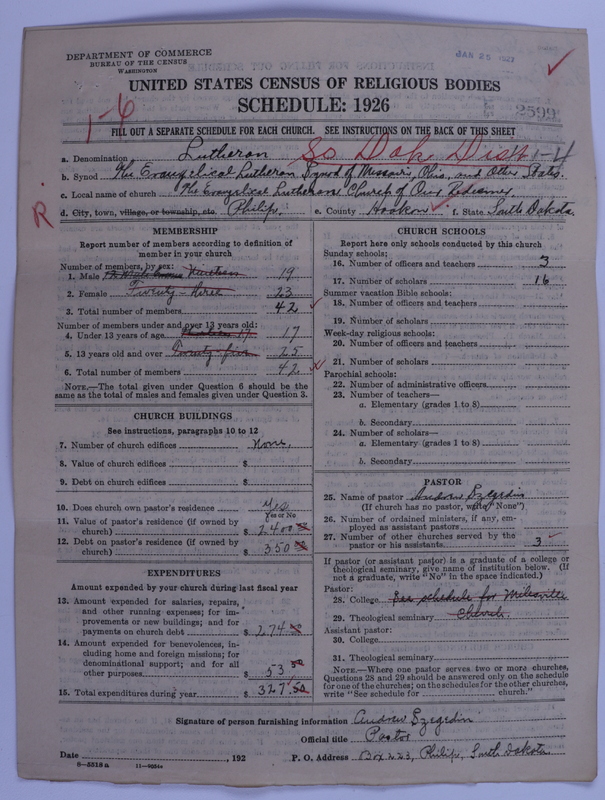 DEPARTMENT OF COMMERCE
BUREAU OF THE CENSUS
WASHINGTON
JAN 25 1927
UNITED STATES CENSUS OF RELIGIOUS BODIES
SCHEDULE: 1926
2599
1-6
FILL OUT A SEPARATE SCHEDULE FOR EACH CHURCH. SEE INSTRUCTIONS ON THE BACK OF THIS SHEET
So Dak Dist 1-4
a. Denomination Lutheran
b. Synod The Evangelical Lutheran Synod of Missouri, Ohio, and Other States.
c. Local name of church The Evangelical Lutheran Church of Our Redeemer
R.
d. City, town, village, or township, etc. Philip. e. County Haakon f. State South Dakota.
MEMBERSHIP
Report number of members according to definition of
member in your church
Number of members, by sex:
1. Male Nineteen 19
2. Female Twenty-three 23
3. Total number of members 42
Number of members under and over 13 years old:
4. Under 13 years of age 17 17
5. 13 years old and over Twenty-five 25
6. Total number of members 42
NOTE.—The total given under Question 6 should be
same as the total of males and females given under Question 3.
CHURCH BUILDINGS
See instructions, paragraphs 10 to 12
7. Number of church edifices None.
8. Value of church edifices $
9. Debt on church edifices $
10. Does church own pastor's residence Yes
Yes or No
11. Value of pastor's residence (if owned by
church) $ 2400 00
12. Debt on pastor's residence (if owned by
church) $ 350 00
EXPENDITURES
Amount expended by your church during last fiscal year
13. Amount expended for salaries, repairs,
and other running expenses; for im-
provements or new buildings; and for
payments on church debt $ 274 00
14. Amount expended for benevolences, in-
cluding home and foreign missions; for
denominational support; and for all
other purposes $ 53 50
15. Total expenditures during year $ 327.50
CHURCH SCHOOLS
Report here only schools conducted by this church
Sunday schools:
16. Number of officers and teachers 3
17. Number of scholars 16
Summer vacation Bible schools:
18. Number of officers and teachers
19. Number of scholars
Week-day religious schools:
20. Number of officers and teachers
21. Number of scholars
Parochial schools:
22. Number of administrative officers
23. Number of teachers—
a. Elementary (grades 1 to 8)
b. Secondary
24. Number of scholars—
a. Elementary (grades 1 to 8)
b. Secondary
PASTOR
25. Name of pastor Andrew Szegedin
(If church has no pastor, write "None")
26. Number of ordained ministers, if any, em-
ployed as assistant pastors
27. Number of other churches served by the
pastor or his assistants 3
If pastor (or assistant pastor) is a graduate of a college or
theological seminary, give name of institution below. (If
not a graduate, write "No" in the space indicated.)
Pastor:
28. College See schedule for Milesville
29. Theological seminary Church.
Assistant pastor:
30. College
31. Theological seminary
NOTE.—Where one pastor serves two or more churches,
Questions 28 and 29 should be answered only on the schedule
for one of the churches; on the schedules for the other churches,
write "See schedule for church."
Signature of person furnishing information Andrew Szegedin
Official title Pastor
Date , 192 P. O. Address Box 223, Philip, South Dakota
8—5518 a 11—9554a